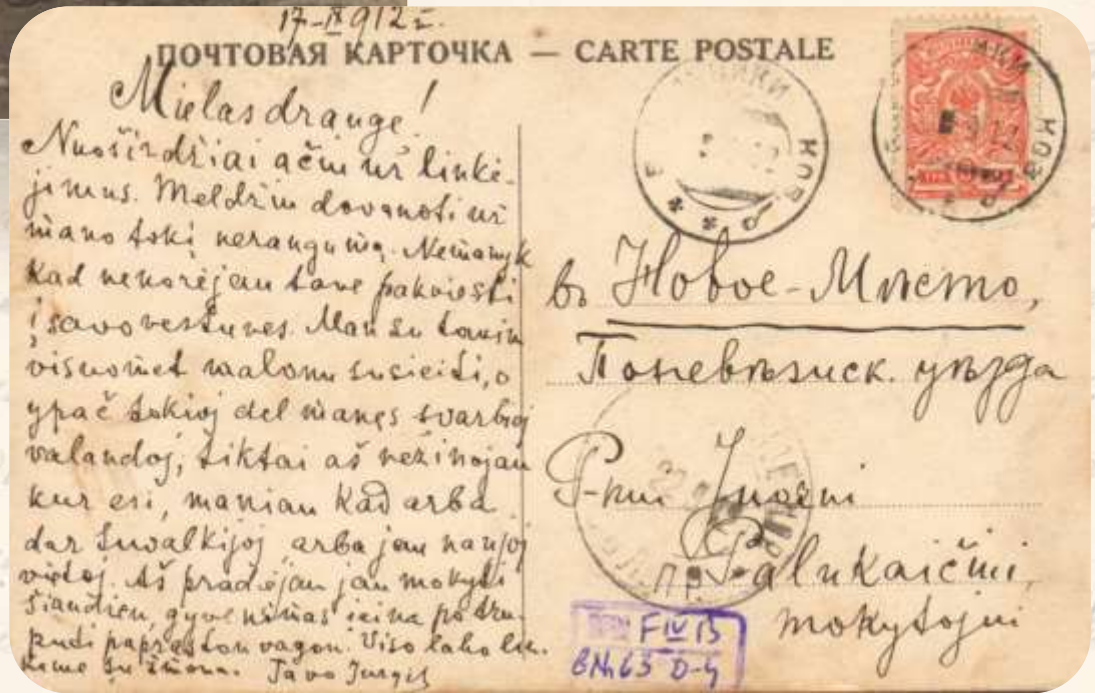 17-IX 912 г.
ПОЧТОВАЯ КАРТОЧКА — CARTE POSTALE
Mielas drauge!
Nuoširdžiai ačiu už linkė-
jimus. Meldžiu dovanoti už
mano tokį nerangumą. Nemanyk
kad nenorėjau tave pakviesti
į savo vestuves. Man su tavim
visuomet malonu susieiti, o
ypač tokioj del manęs svarbioj
valandoj, tiktai aš nežinojau
kur esi, maniau kad arba
dar Suvalkijoj arba jau naujoj
vietoj. Aš pradėjau jau mokyti
šiandien, gyvenimas eina po tru-
puti papraston vagon. Viso labo lin-
kime su žmona. Tavo Jurgis
въ Новое-Мѣсто,
Поневѣжиск. уѣзда
Р-пui Juozui
Balukaičiui,
mokytojui
КОВ
КОВ
F IV 13
BN 63 D-4